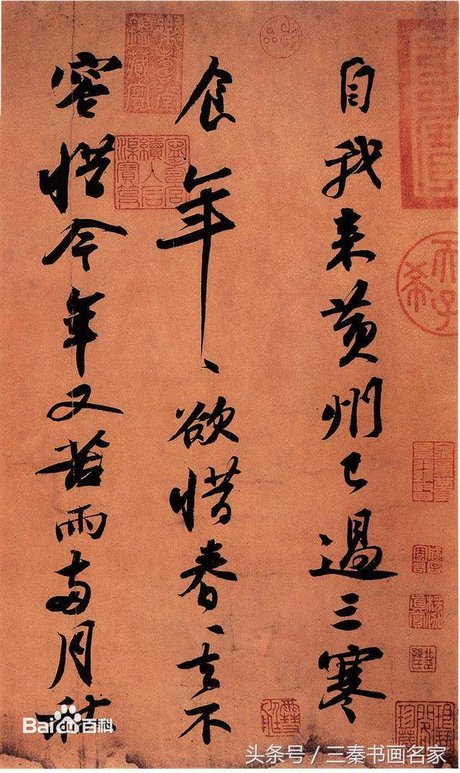 自我来黄州已過三寒
食年、欲惜春、去不
容惜今年又苦雨兩月秋
Bai百科
头条号 / 三秦书画名家